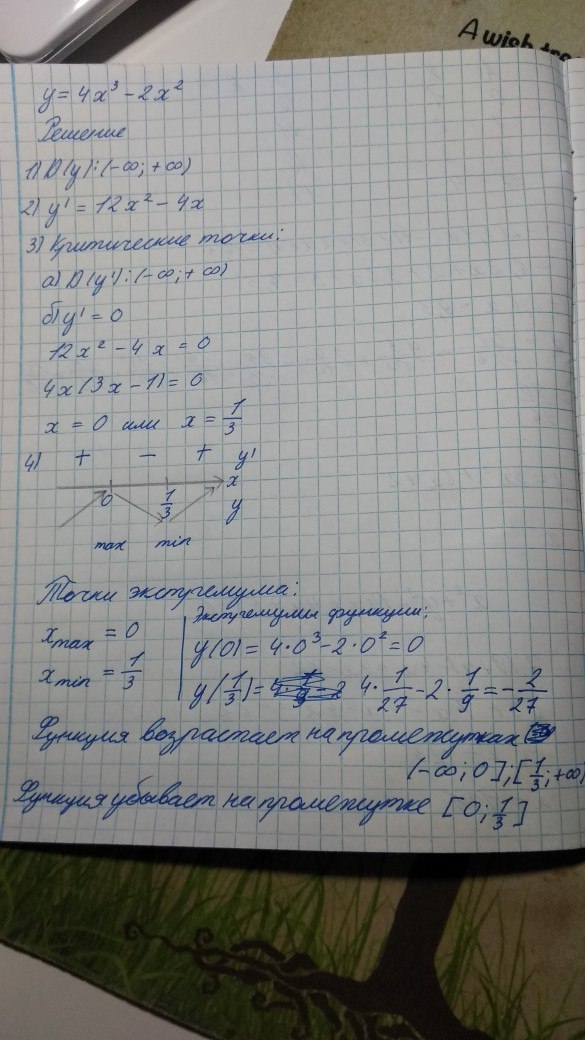 A wish
y = 4x³ - 2x²
Решение
1) D(y): (-∞; +∞)
2) y' = 12x² - 4x
3) Критические точки:
а) D(y'): (-∞; +∞)
б) y' = 0
12x² - 4x = 0
4x(3x - 1) = 0
x = 0 или x = 1/3
4) + - + y'
x
0 1/3 y
max min
Точки экстремума:
x max = 0
x min = 1/3
Экстремумы функции:
y(0) = 4·0³ - 2·0² = 0
y(1/3) = 4·1/27 - 2·1/9 = -2/27
Функция возрастает на промежутках
(-∞; 0]; [1/3; +∞)
Функция убывает на промежутке [0; 1/3]